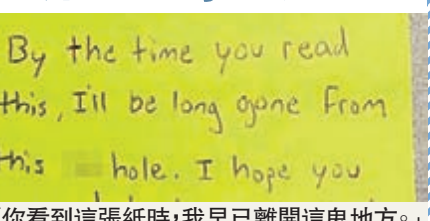 By the time you read
this, I'll be long gone from
this hole. I hope you
你看到這張紙時，我早已離開這鬼地方。」